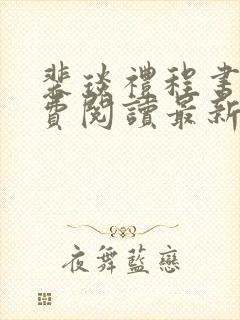 裴琰禮程書
費閱讀最新
夜舞藍戀